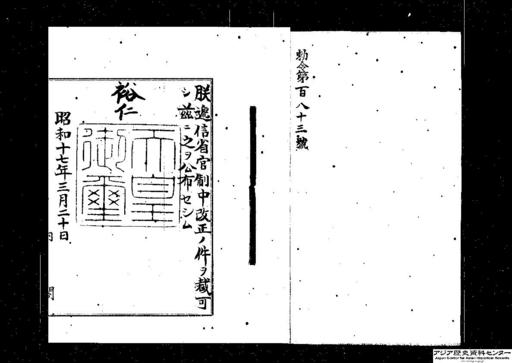 勅令第百八十三號
朕遞信省官制中改正ノ件ヲ裁可
シ茲ニ之ヲ公布セシム
裕仁
天皇御璽
昭和十七年三月二十日
内
アジア歴史資料センター
Japan Center for Asian Historical Records